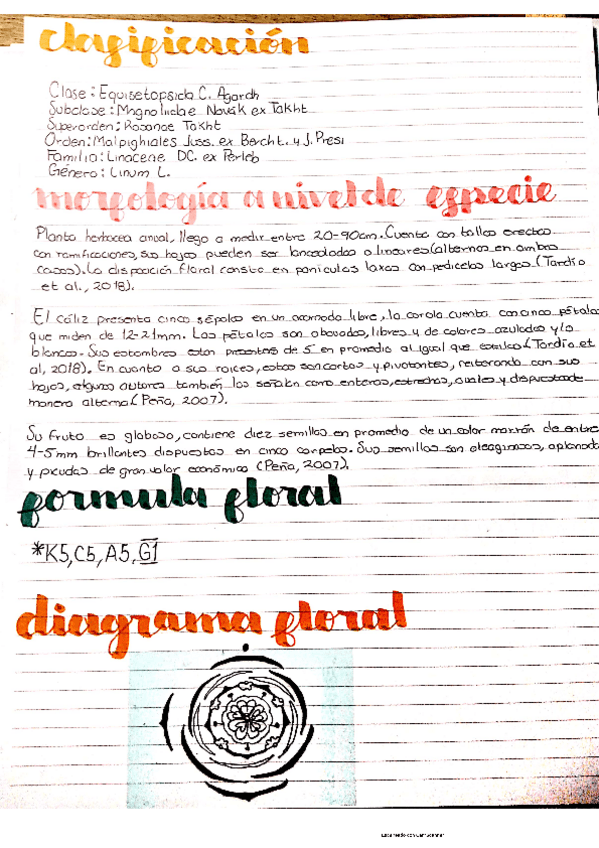 clasificación
Clase: Equisetopsida C. Agardh
Subclase: Magnoliidae Novák ex Takht
Superorden: Rosanae Takht
Orden: Malpighiales Juss. ex Bercht. y J. Presl
Familia: Linaceae DC. ex Perleb
Género: Linum L.
morfología a nivel de especie
Planta herbacea anual, llega a medir entre 20-90cm. Cuenta con tallos erectos
con ramificaciones, sus hojas pueden ser lanceoladas o lineares (alternas en ambos
casos). La disposición floral consta en panículas laxas con pedicelos largos (Tardío
et al., 2018).
El cáliz presenta cinco sépalos en un acomodo libre, la corola cuenta con cinco pétalos
que miden de 12-21mm. Los pétalos son obovados, libres y de colores azulados y/o
blancos. Sus estambres estan presentes de 5 en promedio al igual que estilos (Tardío et
al, 2018). En cuanto a sus raíces, estas son cortas y pivotantes, reiterando con sus
hojas, algunos autores también las señalan como enteras, estrechas, ovales y dispuestas de
manera alterna (Peña, 2007).
Su fruto es globoso, contiene diez semillas en promedio de un color marrón de entre
4-5mm brillantes dispuestos en cinco carpelos. Sus semillas son oleaginosas, aplanadas
y picudas de gran valor económico (Peña, 2007).
formula floral
*K5,C5,A5,G1
diagrama floral